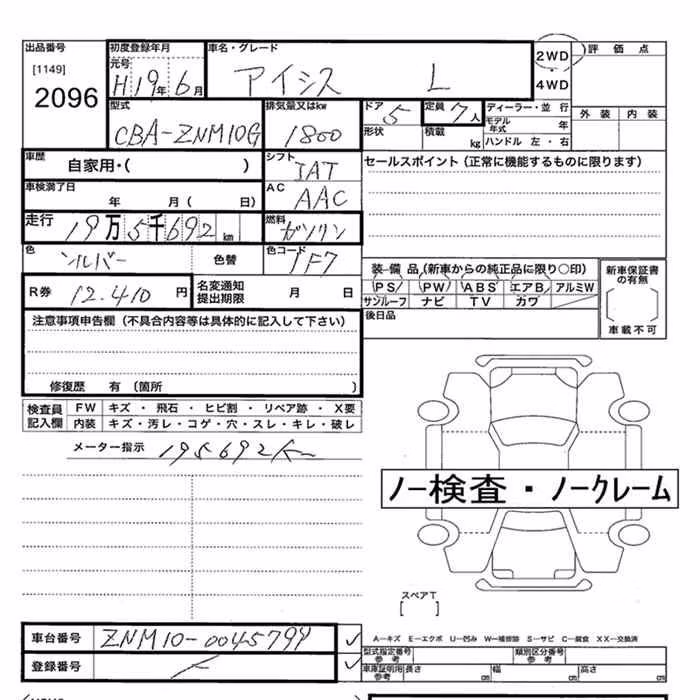 出品番号 初度登録年月 車名・グレード 2WD 評価点
[1149] 元号 ・
2096 H19年6月 アイシス L 4WD
型式 排気量又はkw ドア 定員 ディーラー・並行 外装 内装
CBA-ZNM10G 1800 5 7人 モデル年式 年
形状 積載 kg ハンドル 左・右
車歴 自家用・( ) シフト IAT セールスポイント (正常に機能するものに限ります)
車検満了日 年 月( 日) AC AAC
走行 19万5千692km 燃料 ガソリン
色 シルバー 色替 色コード 1F7 装備品(新車からの純正品に限り○印) 新車保証書の有無
R券 12,410円 名変通知 提出期限 月 日 PS PW ABS エアB アルミW
サンルーフ ナビ TV カワ
[ ]
車載不可
注意事項申告欄(不具合内容等は具体的に記入して下さい) 後日品
修復歴 有 (箇所 )
検査員記入欄 FW キズ・飛石・ヒビ割・リペア跡・X要
内装 キズ・汚レ・コゲ・穴・スレ・キレ・破レ
メーター指示 195692K
ノー検査・ノークレーム
スペアT
[ ]
車台番号 ZNM10-0045799 ✓ A-キズ E-エクボ U-凹み W-補修跡 S-サビ C-腐食 XX-交換済
型式指定番号 参考 類別区分番号 参考
登録番号 ✓ 車庫証明用 参考 長さ cm 幅 cm 高さ cm